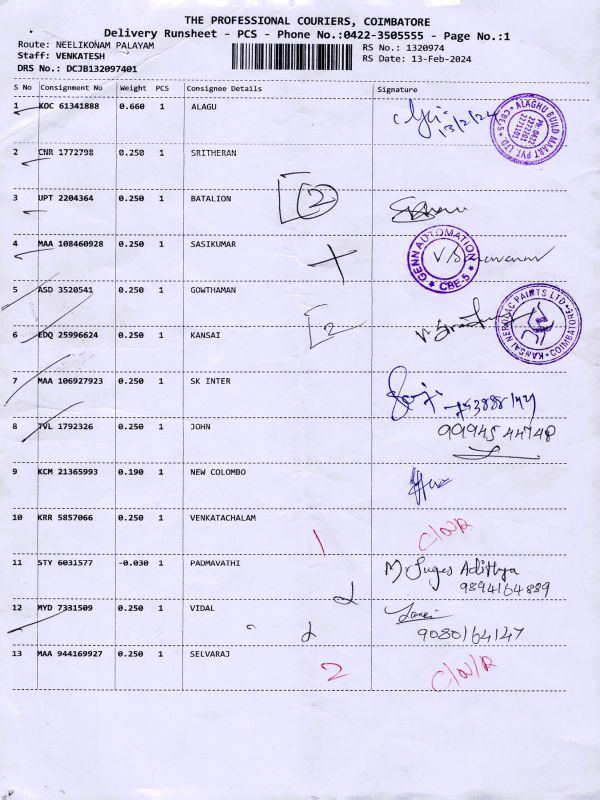 THE PROFESSIONAL COURIERS, COIMBATORE
Delivery Runsheet - PCS - Phone No.:0422-3505555 - Page No.:1
Route: NEELIKONAM PALAYAM
Staff: VENKATESH
DRS No.: DCJB132097401
RS No.: 1320974
RS Date: 13-Feb-2024
S No Consignment No Weight PCS Consignee Details Signature
1 KOC 61341888 0.660 1 ALAGU 13/2/24
2 CNR 1772798 0.250 1 SRITHERAN
3 UPT 2204364 0.250 1 BATALION 2
4 MAA 108460928 0.250 1 SASIKUMAR
GENN AUTOMATION * CBE-5 *
5 ASD 3520541 0.250 1 GOWTHAMAN
6 EDQ 25996624 0.250 1 KANSAI 2
KANSAI NEROLAC PAINTS LTD * COIMBATORE *
7 MAA 106927923 0.250 1 SK INTER
8 TVL 1792326 0.250 1 JOHN 99945 44748
9 KCM 21365993 0.190 1 NEW COLOMBO
10 KRR 5857066 0.250 1 VENKATACHALAM 1 C/N/R
11 STY 6031577 -0.030 1 PADMAVATHI
9894164889
12 MYD 7331509 0.250 1 VIDAL
9080164147
13 MAA 944169927 0.250 1 SELVARAJ 2 C/N/R